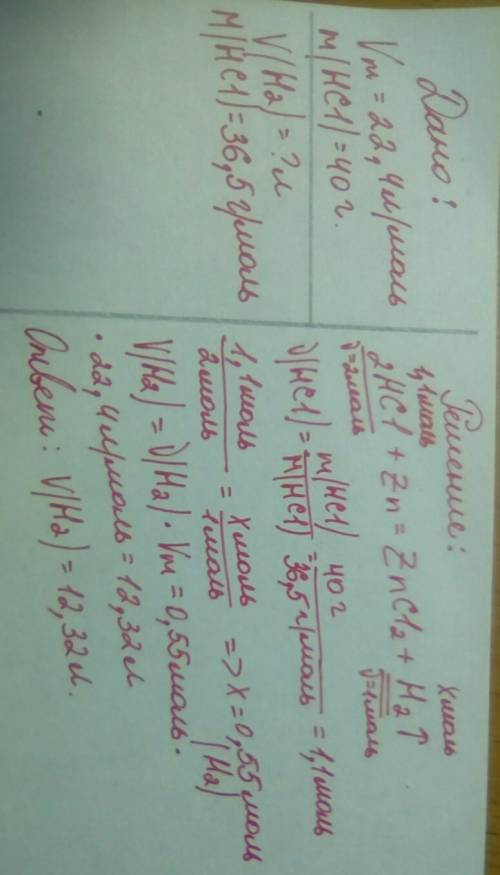 Дано:
Vm = 22,4 л/моль
m(HCl) = 40 г.
V(H2) = ? л
M(HCl) = 36,5 г/моль
Решение:
1,1 моль х моль
2HCl + Zn = ZnCl2 + H2↑
ν=2моль ν=1моль
ν(HCl) = m(HCl)/M(HCl) = 40 г/36,5 г/моль = 1,1 моль
1,1 моль/2 моль = х моль/1 моль => х = 0,55 моль
(H2)
V(H2) = ν(H2) · Vm = 0,55 моль ·
· 22,4 л/моль = 12,32 л
Ответ: V(H2) = 12,32 л.